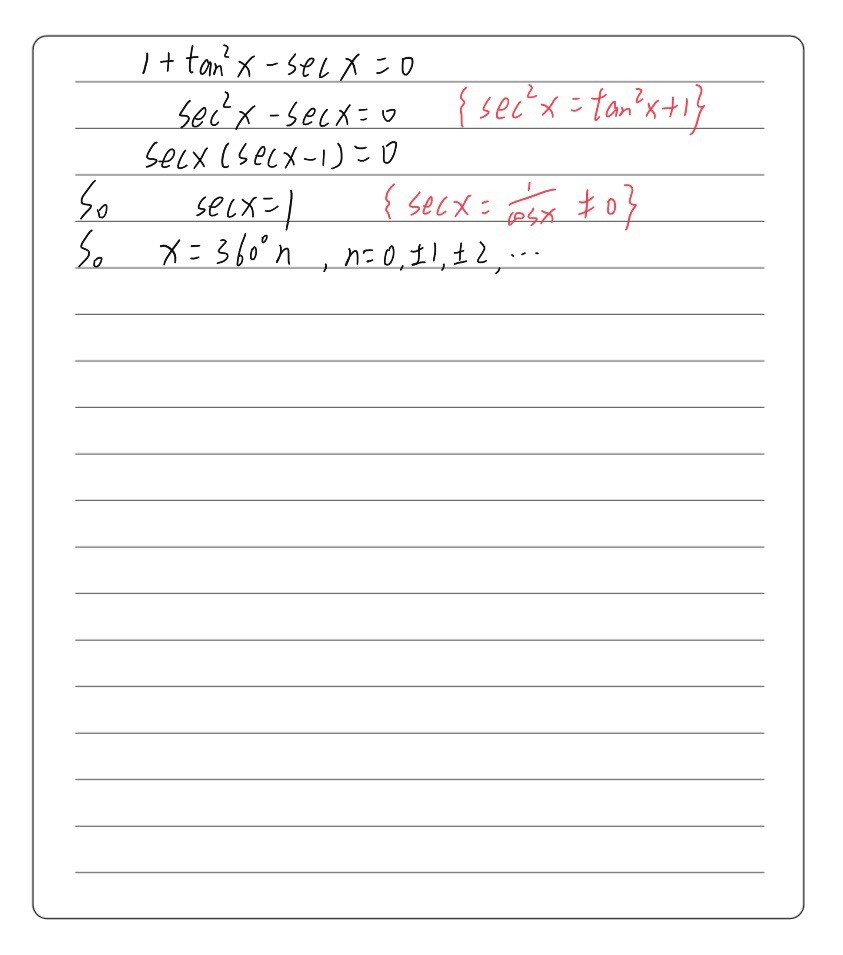 1 + tan²x - sec x = 0
sec²x - sec x = 0 {sec²x = tan²x + 1}
sec x (sec x - 1) = 0
So sec x = 1 {sec x = 1/cos x ≠ 0}
So x = 360°n , n = 0, ±1, ±2, ...